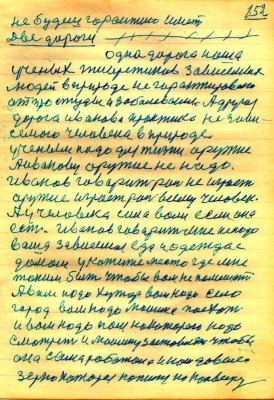 152
не будет гарантии иметь
Две дороги
одна дорога наша
ученых теоретиков зависимых
людей в природе не гарантировано
от простуды и заболевания. А другая
дорога иванова практика не зави-
симого человека в природе.
ученым надо для жизни оружие
А иванову оружие не надо.
Иванов говорит роли не играет
оружие играет роль всему человек.
А у человека сила воли если она
есть. Иванов говорит мне не надо
ваша зависимая еда и одежда с
домом у каком месте где мне
такими быть чтобы вам не помешать
А вам надо хутор вам надо село
город вам надо машина поехать
и вам надо на которую надо
смотреть и машину заставлять чтобы
она сеяла работала и нам давала
зерно которое